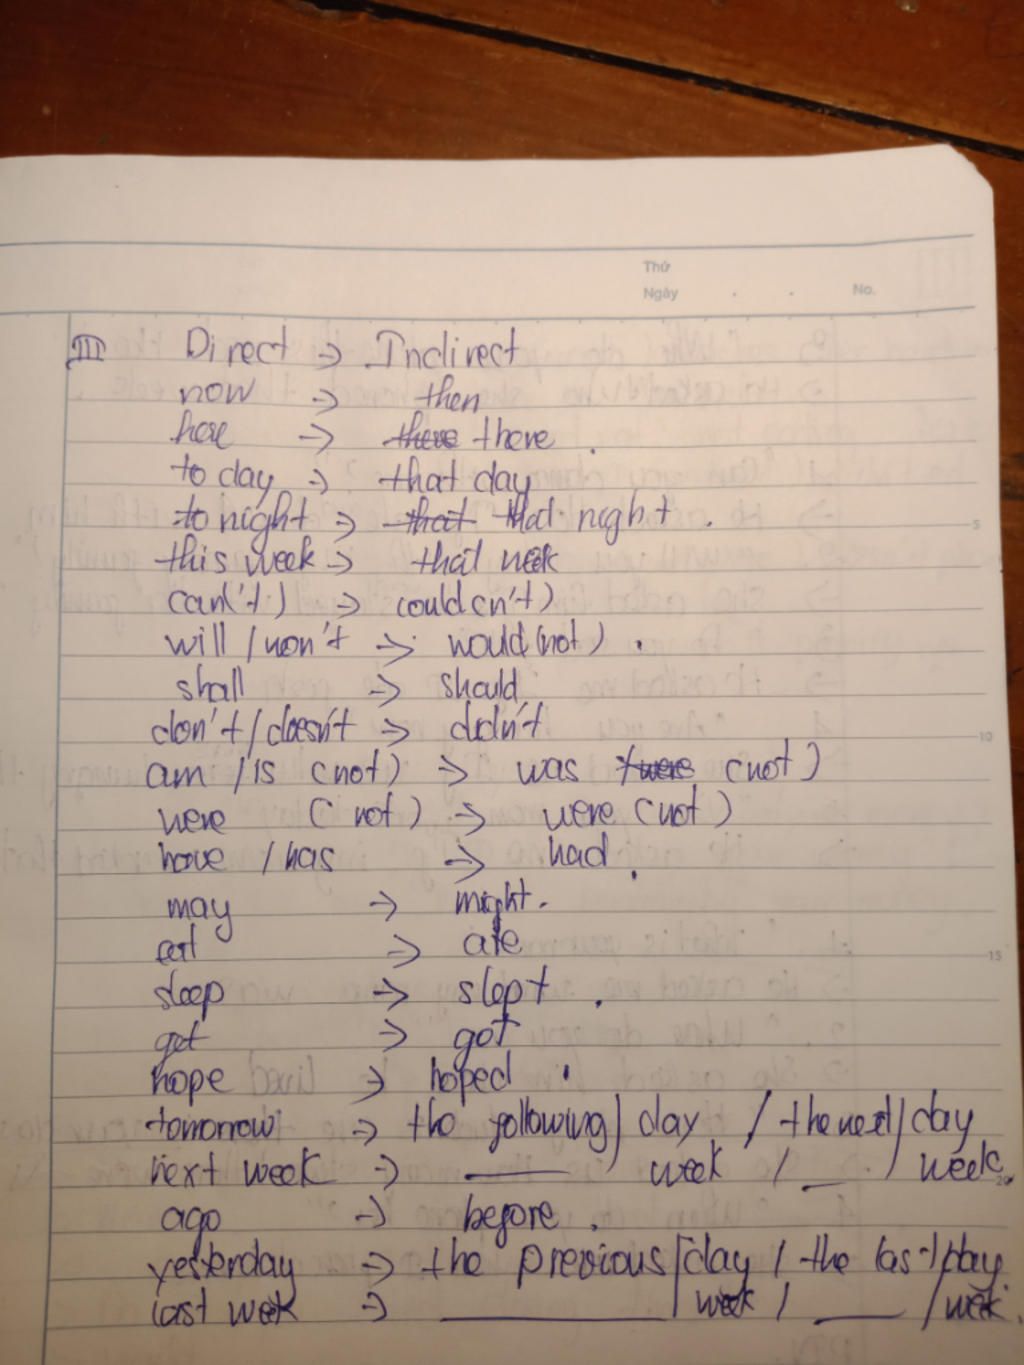 Thứ
Ngày . . No.
III Direct → Indirect
now → then
here → there there.
today → that day
tonight → that that night.
this week → that week
can('t) → could(n't)
will / won't → would (not).
shall → should
don't / doesn't → didn't
am / is (not) → was / were (not)
were (not) → were (not)
have / has → had.
may → might.
eat → ate
sleep → slept.
get → got
hope → hoped.
tomorrow → the following / day / the next / day
next week → ___ week / ___ / week.
ago → before.
yesterday → the previous / day / the last / day.
last week → ___ / week / ___ / week.
5
10
15
20